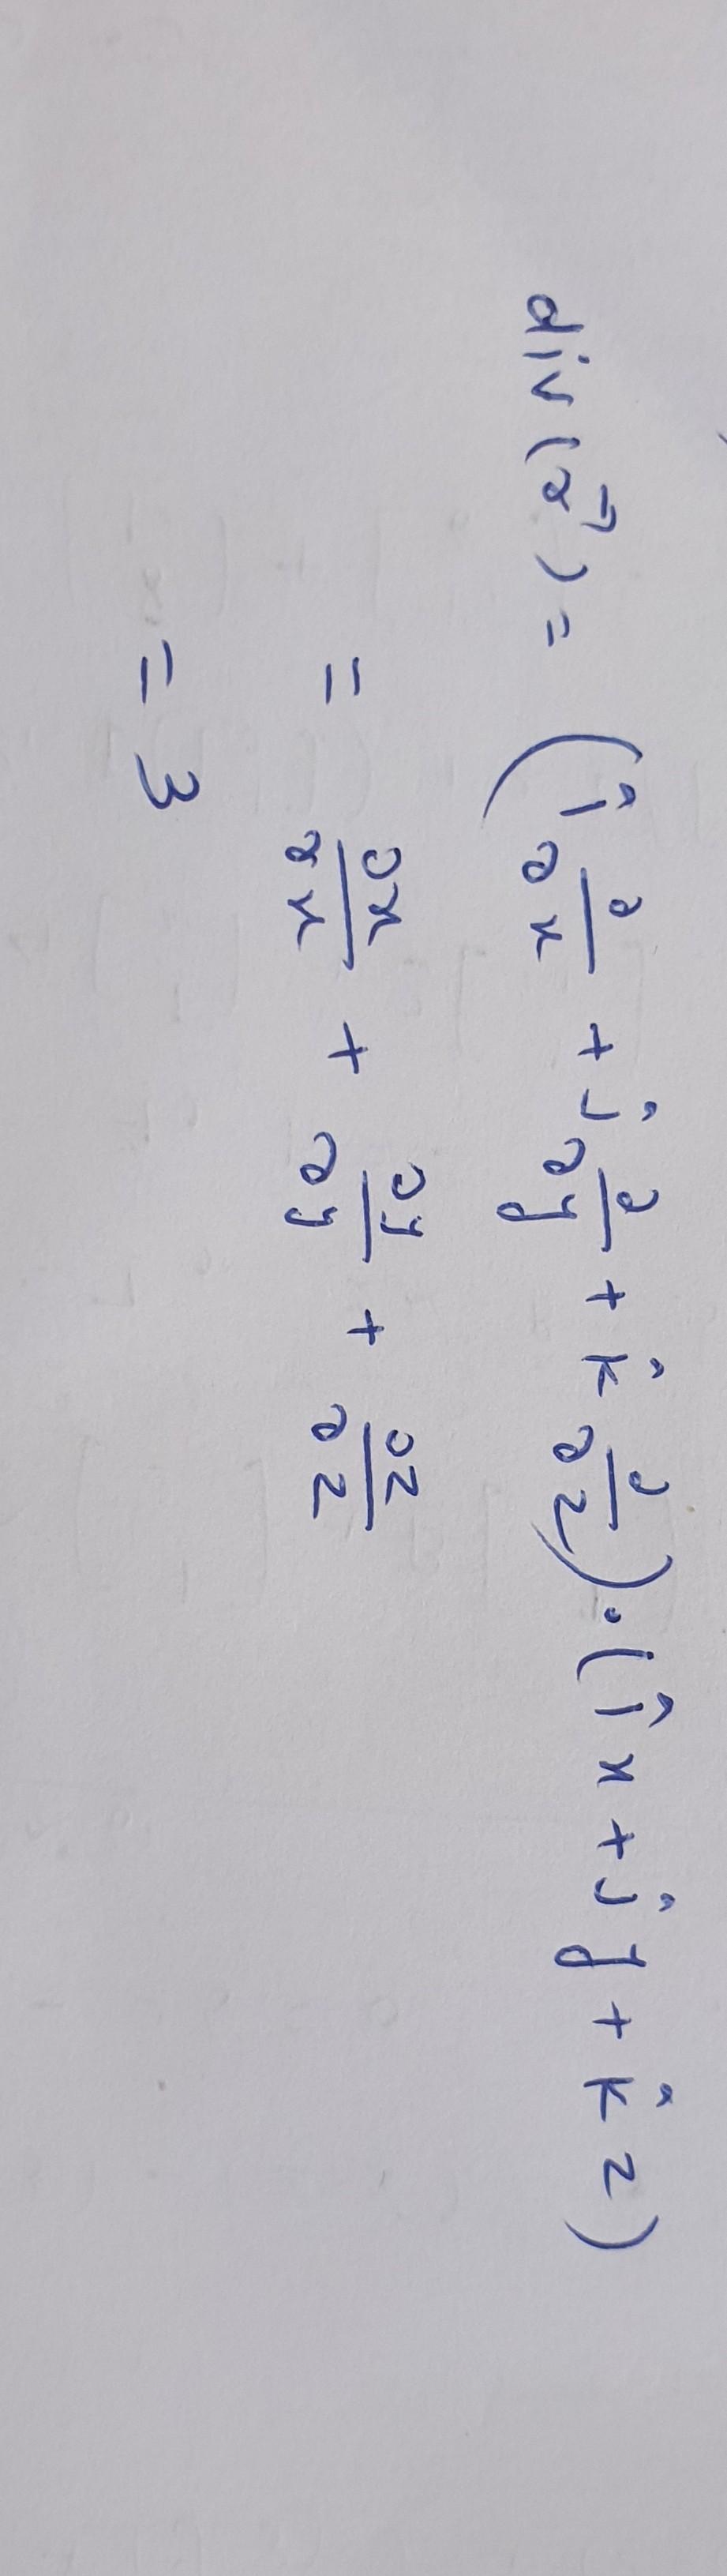 div(r⃗) = (î ∂/∂x + ĵ ∂/∂y + k̂ ∂/∂z)·(îx + ĵy + k̂z)
= ∂x/∂x + ∂y/∂y + ∂z/∂z
= 3